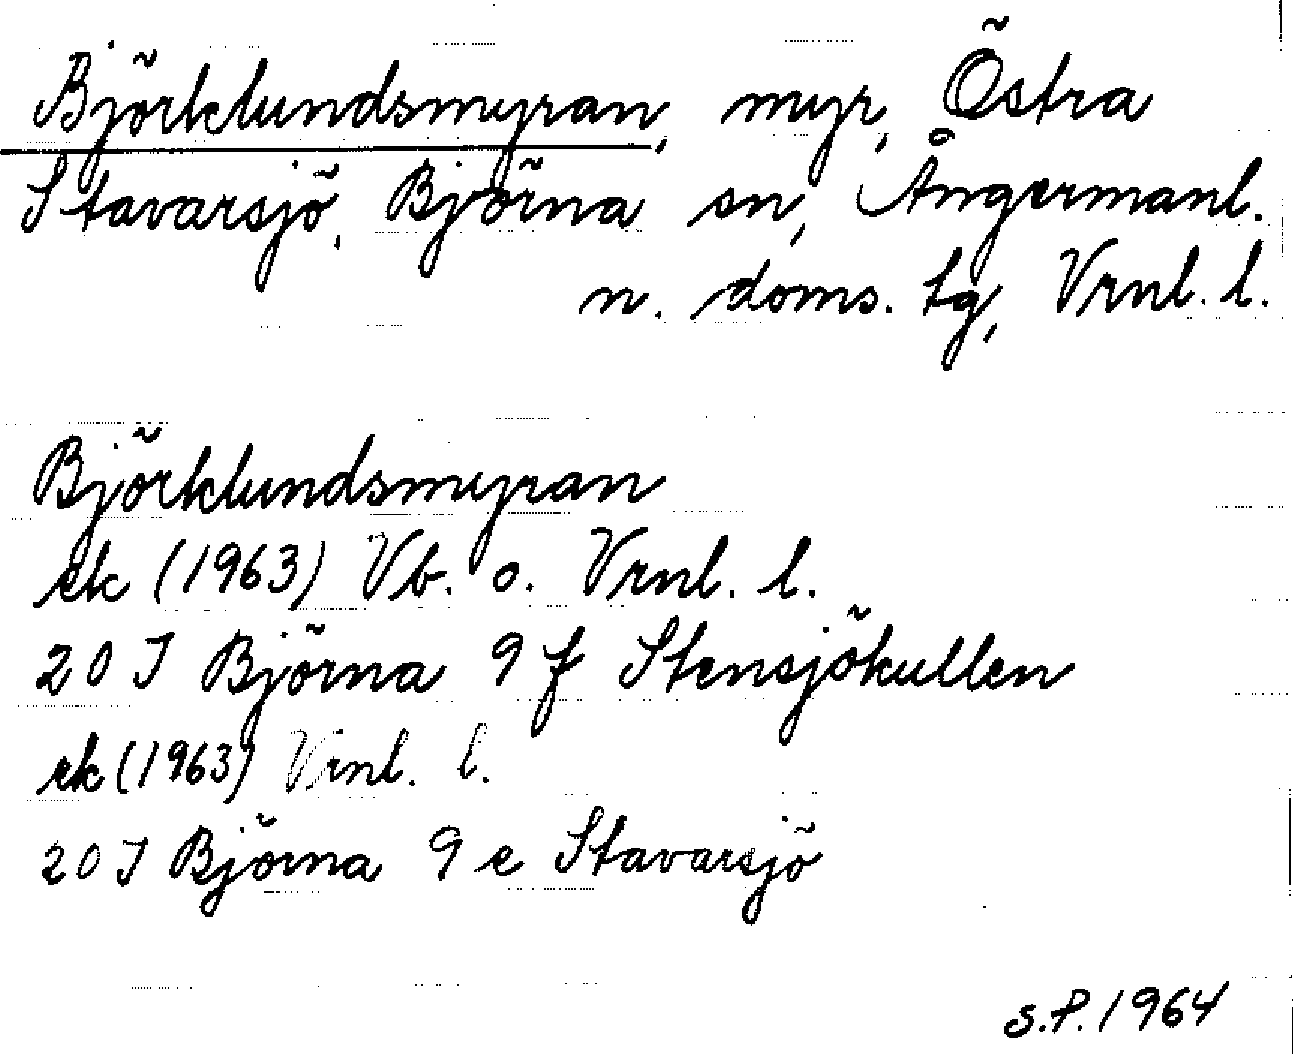 Björklundsmyran, myr, Östra
Stavarsjö, Björna sn, Ångermanl.
n. doms. tg, Vrnl. l.
Björklundsmyran
ek (1963) Vb. o. Vrnl. l.
20 J Björna 9 f Stensjökullen
ek (1963) Vrnl. l.
20 J Björna 9 e Stavarsjö
S.P. 1964